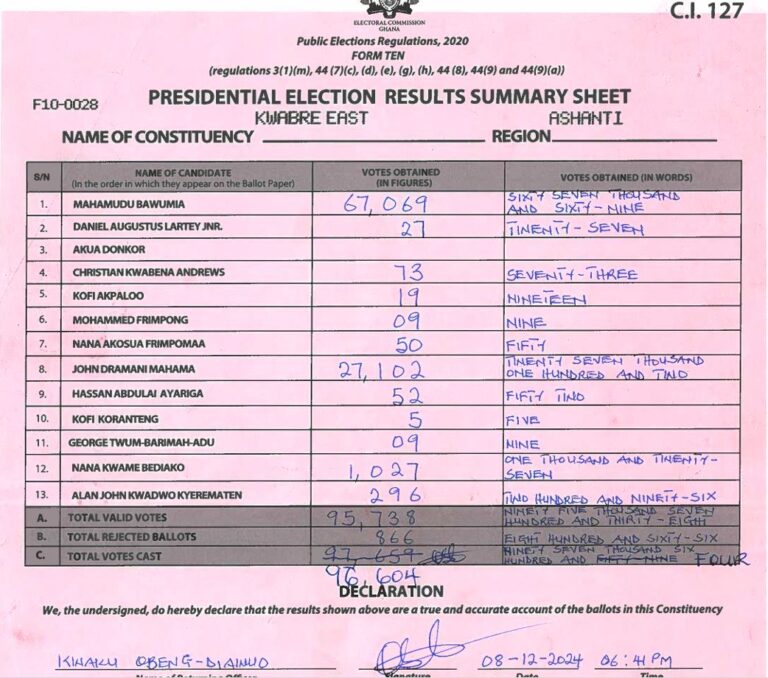 C.I. 127
ELECTORAL COMMISSION
GHANA
Public Elections Regulations, 2020
FORM TEN
(regulations 3(1)(m), 44 (7)(c), (d), (e), (g), (h), 44 (8), 44(9) and 44(9)(a))
F10-0028 PRESIDENTIAL ELECTION RESULTS SUMMARY SHEET
KWABRE EAST ASHANTI
NAME OF CONSTITUENCY REGION
S/N NAME OF CANDIDATE (In the order in which they appear on the Ballot Paper) VOTES OBTAINED (IN FIGURES) VOTES OBTAINED (IN WORDS)
1. MAHAMUDU BAWUMIA 67,069 SIXTY SEVEN THOUSAND AND SIXTY-NINE
2. DANIEL AUGUSTUS LARTEY JNR. 27 TWENTY-SEVEN
3. AKUA DONKOR
4. CHRISTIAN KWABENA ANDREWS 73 SEVENTY-THREE
5. KOFI AKPALOO 19 NINETEEN
6. MOHAMMED FRIMPONG 09 NINE
7. NANA AKOSUA FRIMPOMAA 50 FIFTY
8. JOHN DRAMANI MAHAMA 27,102 TWENTY SEVEN THOUSAND ONE HUNDRED AND TWO
9. HASSAN ABDULAI AYARIGA 52 FIFTY TWO
10. KOFI KORANTENG 5 FIVE
11. GEORGE TWUM-BARIMAH-ADU 09 NINE
12. NANA KWAME BEDIAKO 1,027 ONE THOUSAND AND TWENTY-SEVEN
13. ALAN JOHN KWADWO KYEREMATEN 296 TWO HUNDRED AND NINETY-SIX
A. TOTAL VALID VOTES 95,738 NINETY FIVE THOUSAND SEVEN HUNDRED AND THIRTY-EIGHT
B. TOTAL REJECTED BALLOTS 866 EIGHT HUNDRED AND SIXTY-SIX
C. TOTAL VOTES CAST 97-659 NINETY SEVEN THOUSAND SIX HUNDRED AND FIFTY-NINE FOUR
96,604
DECLARATION
We, the undersigned, do hereby declare that the results shown above are a true and accurate account of the ballots in this Constituency
KWAKU OBENG-DIAWUO 08-12-2024 06:41 PM
Name of Returning Officer Signature Date Time